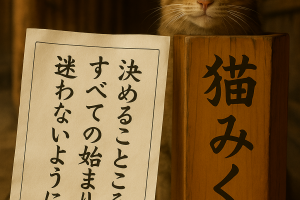 猫みく
決めることころ
すべての始まり
迷わないように